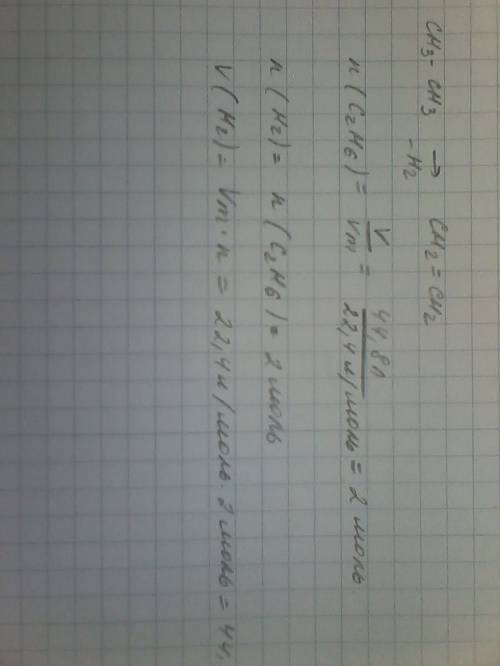 CH₃-CH₃ → CH₂=CH₂
-H₂
n(C₂H₆) = V/Vm = 44,8л/22,4л/моль = 2 моль
n(H₂) = n(C₂H₆) = 2 моль
V(H₂) = Vm·n = 22,4л/моль·2 моль = 44,